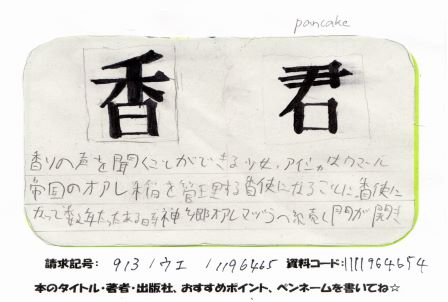 pancake
香君
香りの声を聞くことができる少女・アイシャはウマール
帝国のオアレ稲を管理する香使になることに 香使に
なって数年たったある時 神郷オアレマヅラへ続く門が開き
請求記号: 913/ウエ/11196465 資料コード:1111964654
本のタイトル・著者・出版社、おすすめポイント、ペンネームを書いてね☆